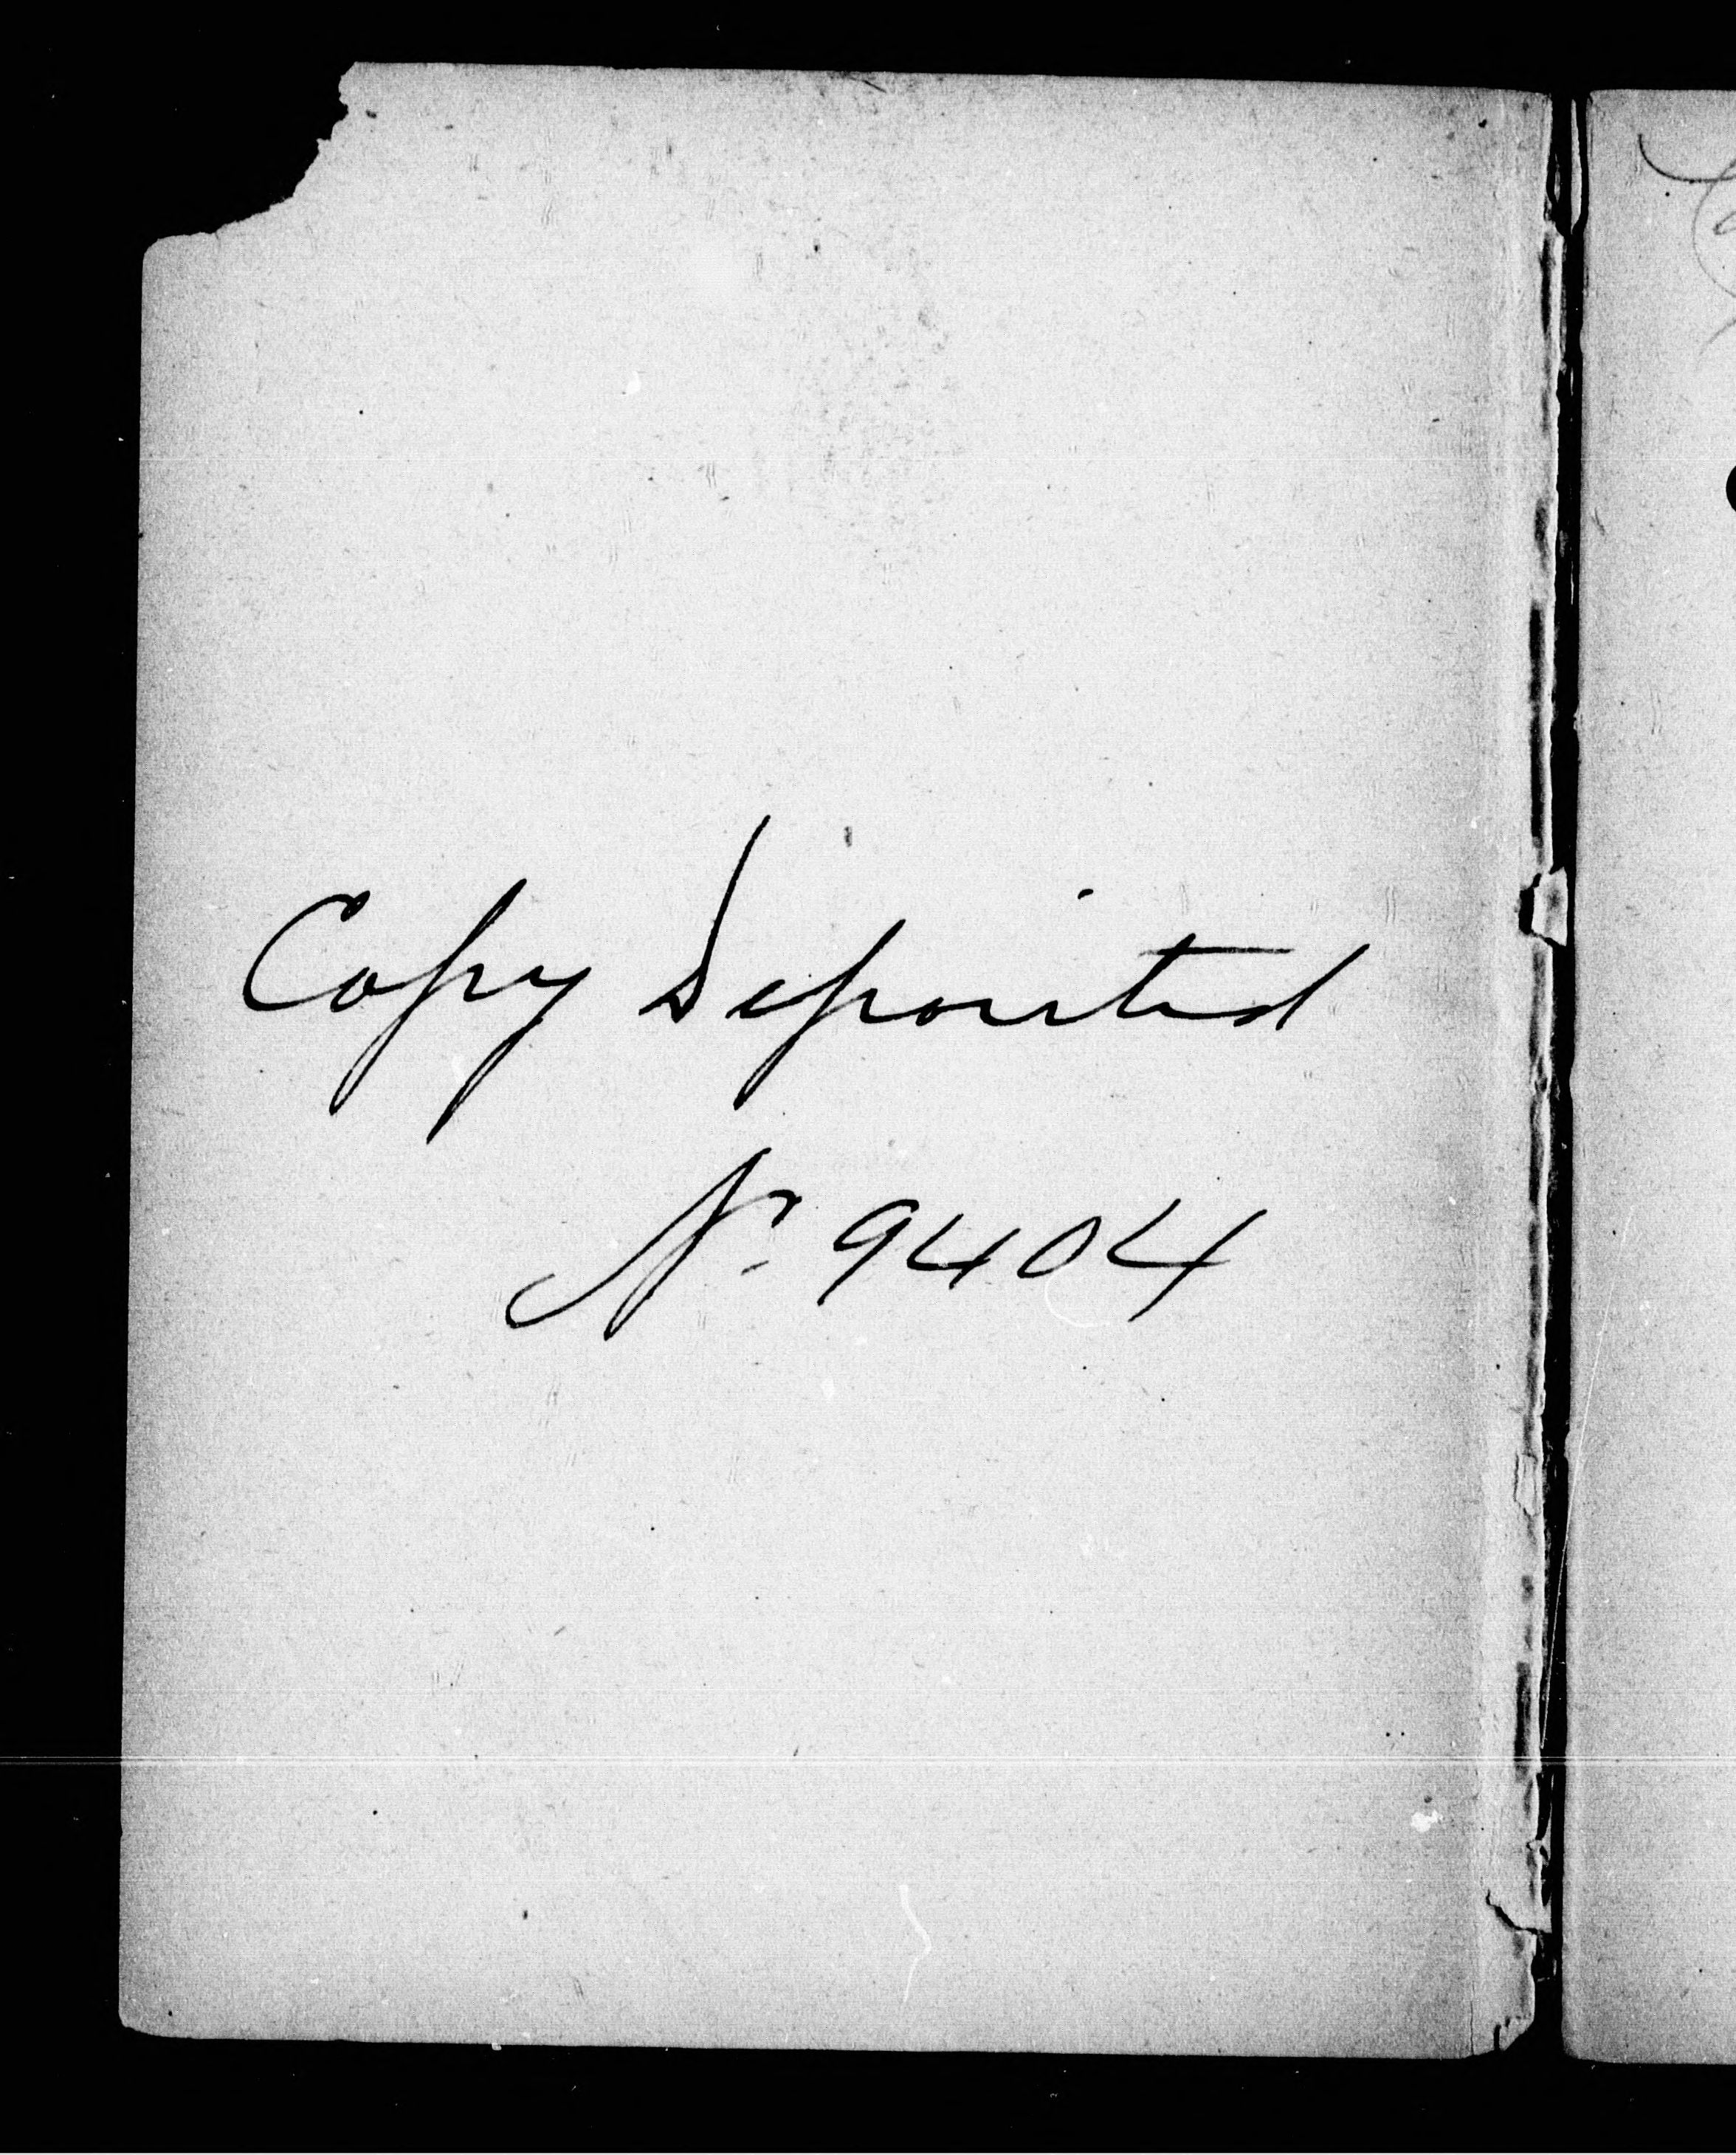 Copy Deposited
No. 9404